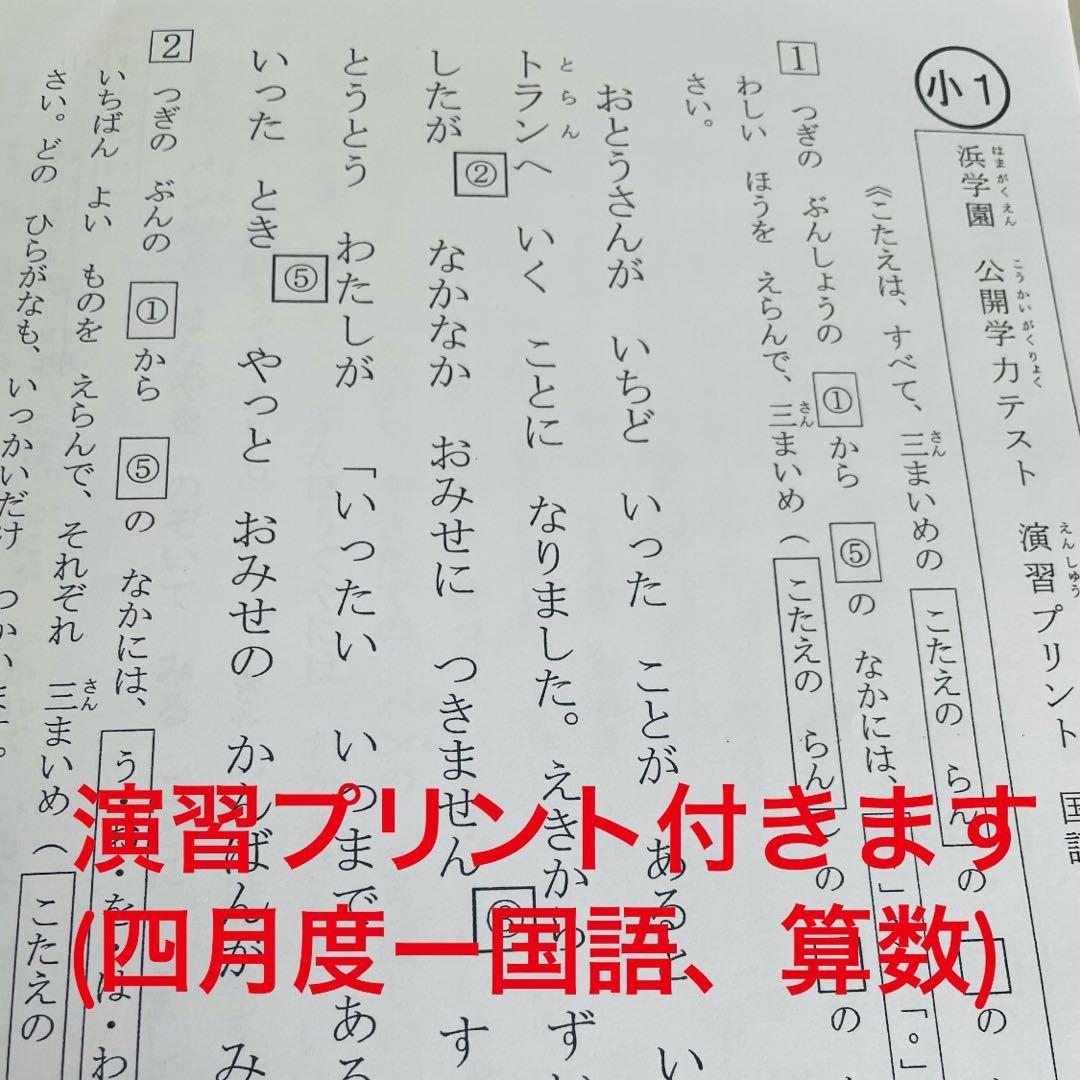 小1
浜学園 公開学力テスト 演習プリント 国語
はまがくえん こうかいがくりょく えんしゅう
《こたえは、すべて、三まいめの こたえの らん の
さん
1 つぎの ぶんしょうの ①から ⑤の なかには、「、」「。」
わしい ほうを えらんで、三まいめ(こたえの らん の の
さん
さい。
おとうさんが いちど いった ことが あると い
トランへ いく ことに なりました。えきから
とらん
したが② なかなか おみせに つきません す
とうとう わたしが 「いったい いつまで ある
いった とき⑤ やっと おみせの かんばんが み
2 つぎの ぶんの ①から ⑤の なかには、う・を・は・わ
いちばん よい ものを えらんで、それぞれ 三まいめ(こたえの
さん
さい。どの ひらがなも、いっかいだけ つかいます。
演習プリント付きます
(四月度ー国語、算数)